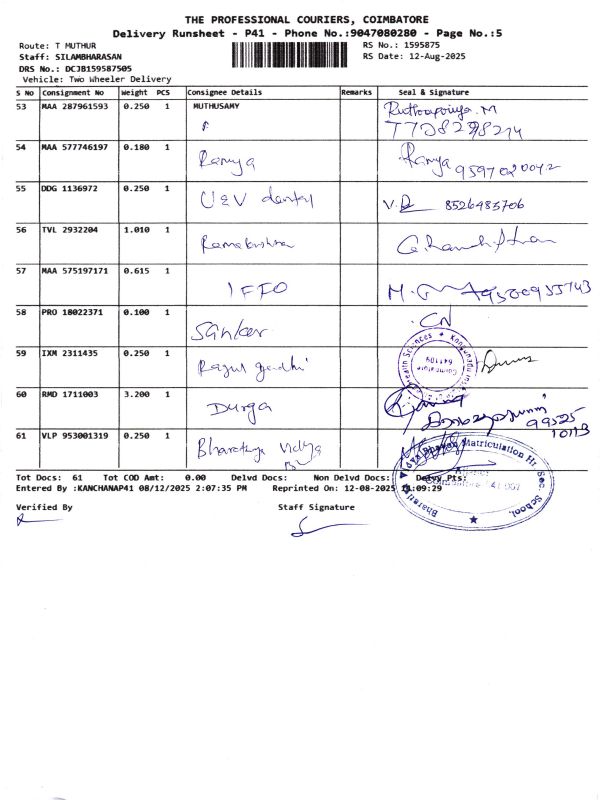 THE PROFESSIONAL COURIERS, COIMBATORE
Delivery Runsheet - P41 - Phone No.:9047080280 - Page No.:5
Route: T MUTHUR
RS No.: 1595875
Staff: SILAMBHARASAN
RS Date: 12-Aug-2025
DRS No.: DCJB159587505
Vehicle: Two Wheeler Delivery
S No Consignment No Weight PCS Consignee Details Remarks Seal & Signature
53 MAA 287961593 0.250 1 MUTHUSAMY
54 MAA 577746197 0.180 1 Ramya Ramya 9597020042
55 DDG 1136972 0.250 1 U&V dental 8526483706
56 TVL 2932204 1.010 1 Ramakrishna
57 MAA 575197171 0.615 1 IFFO
58 PRO 18022371 0.100 1 Sankar CN
59 IXM 2311435 0.250 1 Ragul gandhi
Health Sciences
Coimbatore
641109
60 RMD 1711003 3.200 1 Durga
99525
10113
61 VLP 953001319 0.250 1 Bharathiya Vidya
Matriculation Hr. Sec. School.
Tot Docs: 61 Tot COD Amt: 0.00 Delvd Docs: Non Delvd Docs: Delvy Pts:
Entered By :KANCHANAP41 08/12/2025 2:07:35 PM Reprinted On: 12-08-2025
Verified By
Staff Signature